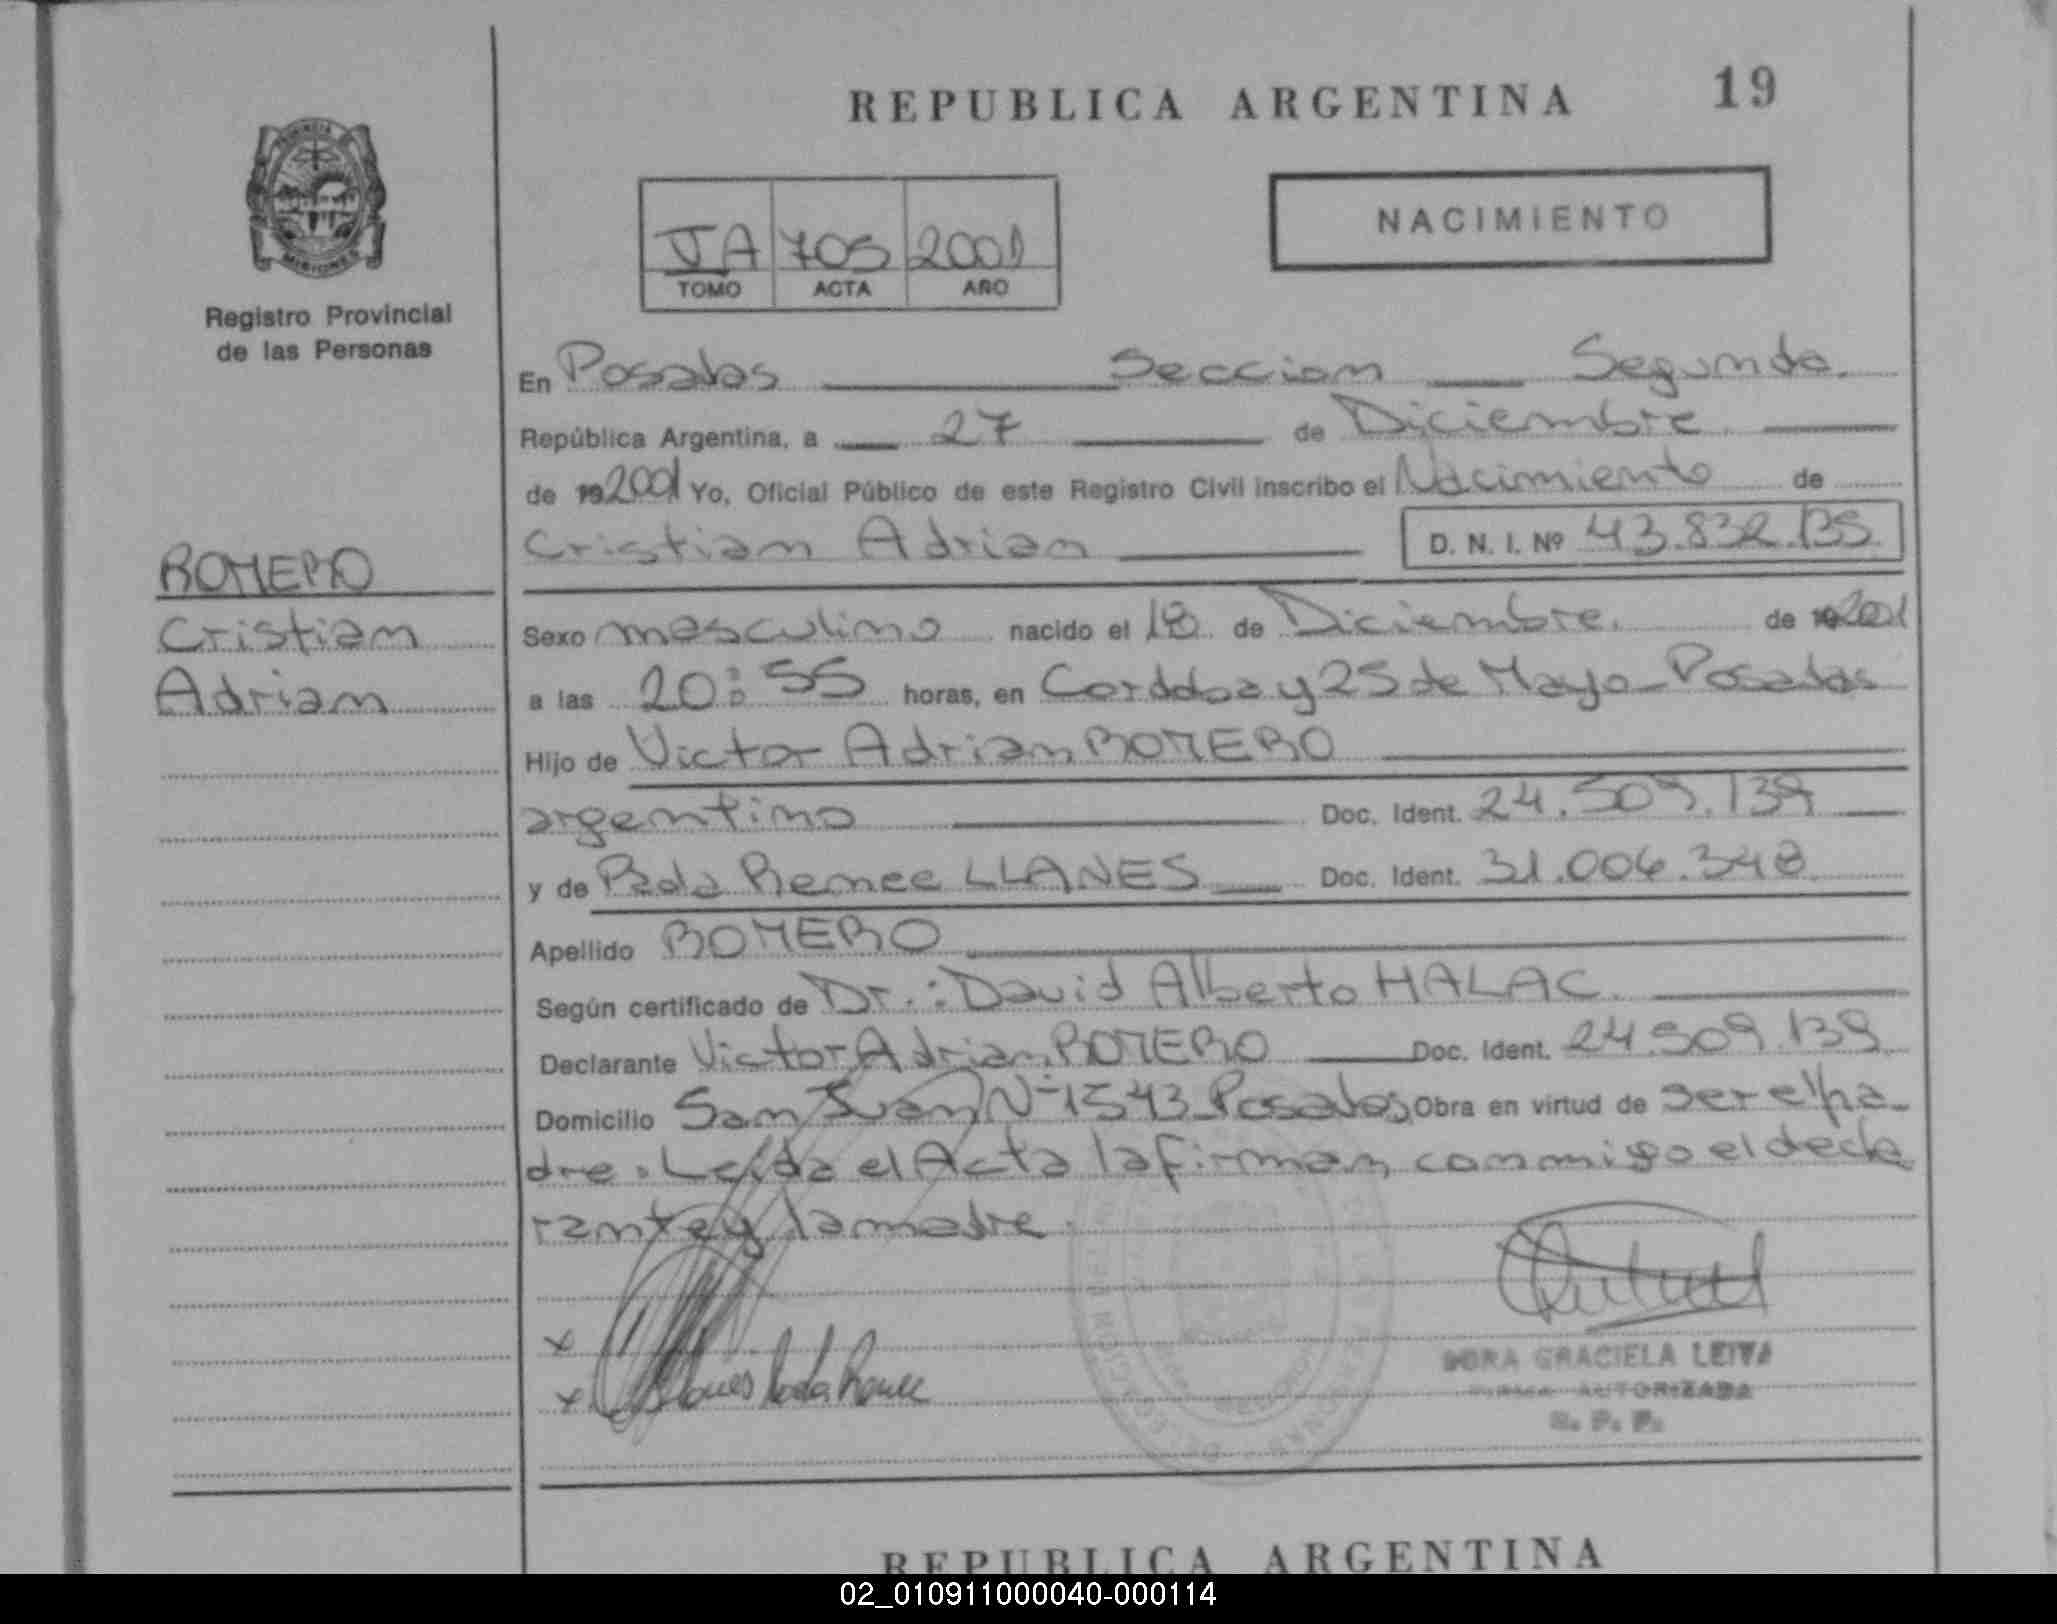 REPUBLICA ARGENTINA 19
PROVINCIA
MISIONES
Registro Provincial
de las Personas
NACIMIENTO
VA 705 2001
TOMO ACTA AÑO
En Posadas Seccion Segunda.
República Argentina, a 27 de Diciembre
de 192001 Yo, Oficial Público de este Registro Civil inscribo el Nacimiento de
Cristian Adrian D. N. I. Nº 43.832.135
ROMERO
Cristian
Adrian
Sexo masculino nacido el 18 de Diciembre. de 192001
a las 20:55 horas, en Cordoba y 25 de Mayo - Posadas
Hijo de Victor Adrian ROMERO
argentino Doc. Ident. 24.509.139
y de Paola Renee LLANES Doc. Ident. 31.006.348
Apellido ROMERO
Según certificado de Dr.: David Alberto HALAC.
Declarante Victor Adrian ROMERO Doc. Ident. 24.509.139
Domicilio San Juan Nº 1543 Posadas Obra en virtud de ser el pa-
dre. Leída el Acta la firman conmigo el decla
rante y la madre.
x
x Llanes Paola Renee
DORA GRACIELA LEIVA
FIRMA AUTORIZADA
R. P. P.
REPUBLICA ARGENTINA
02_010911000040-000114